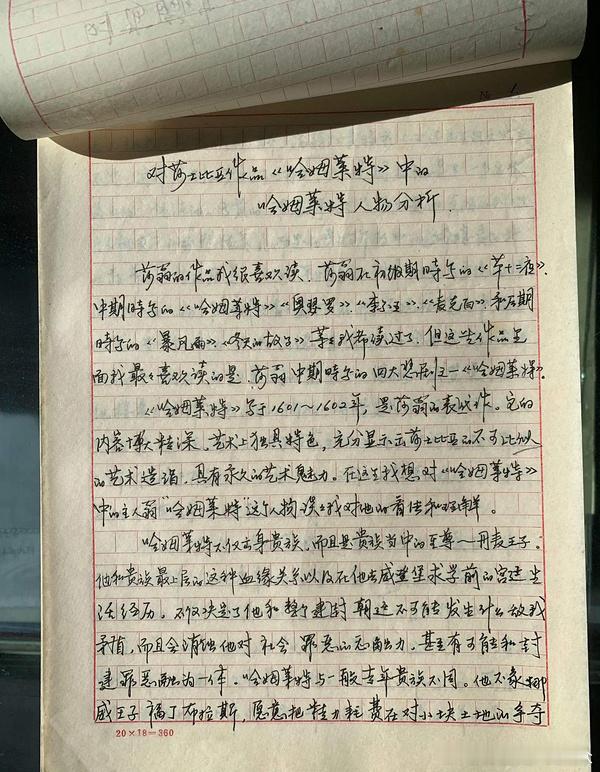 对莎士比亚作品《哈姆莱特》中的
哈姆莱特人物分析.
莎翁的作品我很喜欢读.莎翁在初级期时写的《第十二夜》.
中期时写的《哈姆莱特》《奥瑟罗》.《李尔王》.《麦克白》.和后期
时写的《暴风雨》.《冬天的故事》等等我都读过了.但这些作品里
面我最最喜欢读的是.莎翁中期时写的四大悲剧之一《哈姆莱特》.
《哈姆莱特》写于1601~1602年,是莎翁的表代作。它的
内容博大精深.艺术上独具特色,充分显示出莎士比亚的不可比拟
的艺术造诣,具有永久的艺术魅力。在这里我想对《哈姆莱特》
中的主人翁"哈姆莱特"这个人物谈谈我对他的看法和理解。
哈姆莱特不仅出身贵族,而且是贵族当中的至尊~丹麦王子.
他和贵族最上层的这种血缘关系以及在他去威登堡求学前的宫廷生
活经历.不仅决定了他和整个封建朝廷不可能发生什么敌我
矛盾,而且会消蚀他对社会罪恶的洞察力.甚至有可能和封
建罪恶融为一体.哈姆莱特与一般青年贵族不同。他不象挪
威王子福丁布拉斯,愿意把精力耗费在对小块土地的争夺
20×18=360